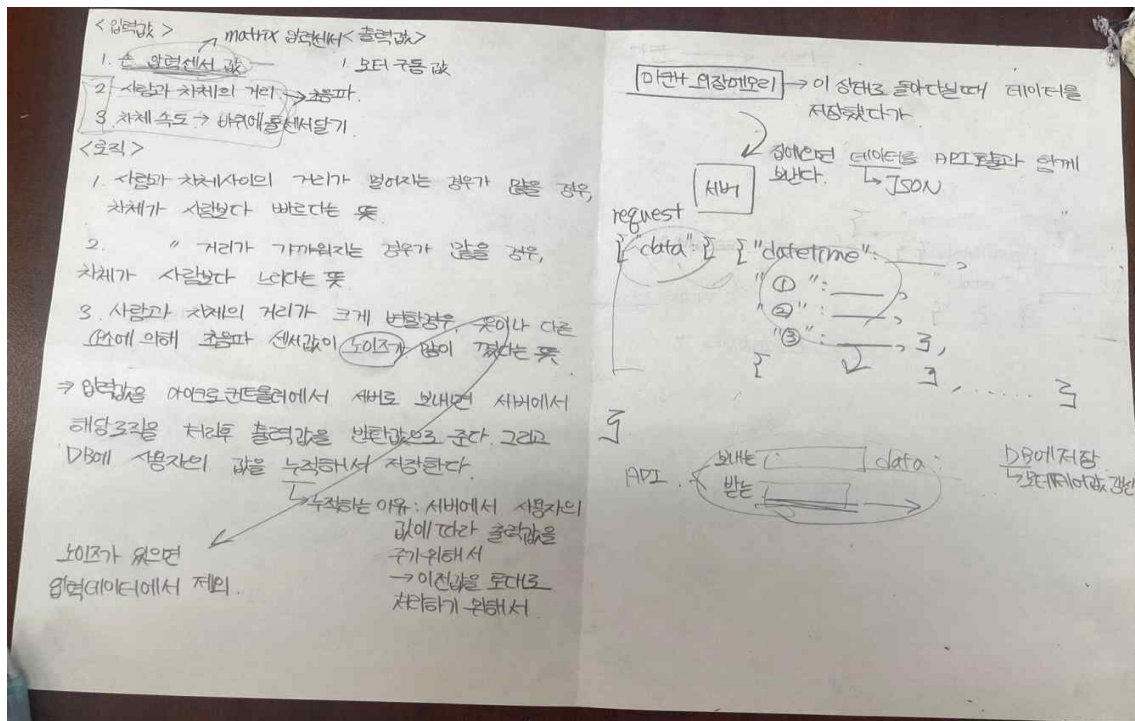 <입력값>
→ matrix 압력센서
<출력값>
1. 손 압력센서 값
1. 모터 구동 값
2. 사람과 차체의 거리 → 초음파.
3. 차체 속도 → 바퀴에 홀센서달기.
<로직>
1. 사람과 차체사이의 거리가 멀어지는 경우가 많을 경우,
차체가 사람보다 빠르다는 뜻.
2. 〃 거리가 가까워지는 경우가 많을 경우,
차체가 사람보다 느리다는 뜻.
3. 사람과 차체의 거리가 크게 변할경우, 옷이나 다른
요소에 의해 초음파 센서값이 노이즈가 많이 꼈다는 뜻
⇒ 입력값을 마이크로컨트롤러에서 서버로 보내면 서버에서
해당로직을 처리후 출력값을 반환값으로 준다. 그리고
DB에 사용자의 값을 누적해서 저장한다.
↳ 누적하는 이유 : 서버에서 사용자의
값에 따라 출력값을
주기위해서
→ 이전값을 토대로
처리하기 위해서.
노이즈가 있으면
입력데이터에서 제외.
마컨+외장메모리 → 이 상태로 돌아다닐때 데이터를
저장했다가
집에오면 데이터를 API호출과 함께
보낸다.
↳ JSON
서버
request
{ "data" : { { "datetime" : ____ ,
"①" : ____ ,
"②" : ____ ,
"③" : ____ , },
{
} , .....
}
}
API
보내는 data :
받는
DB에저장
↳ 모터제어값갱신